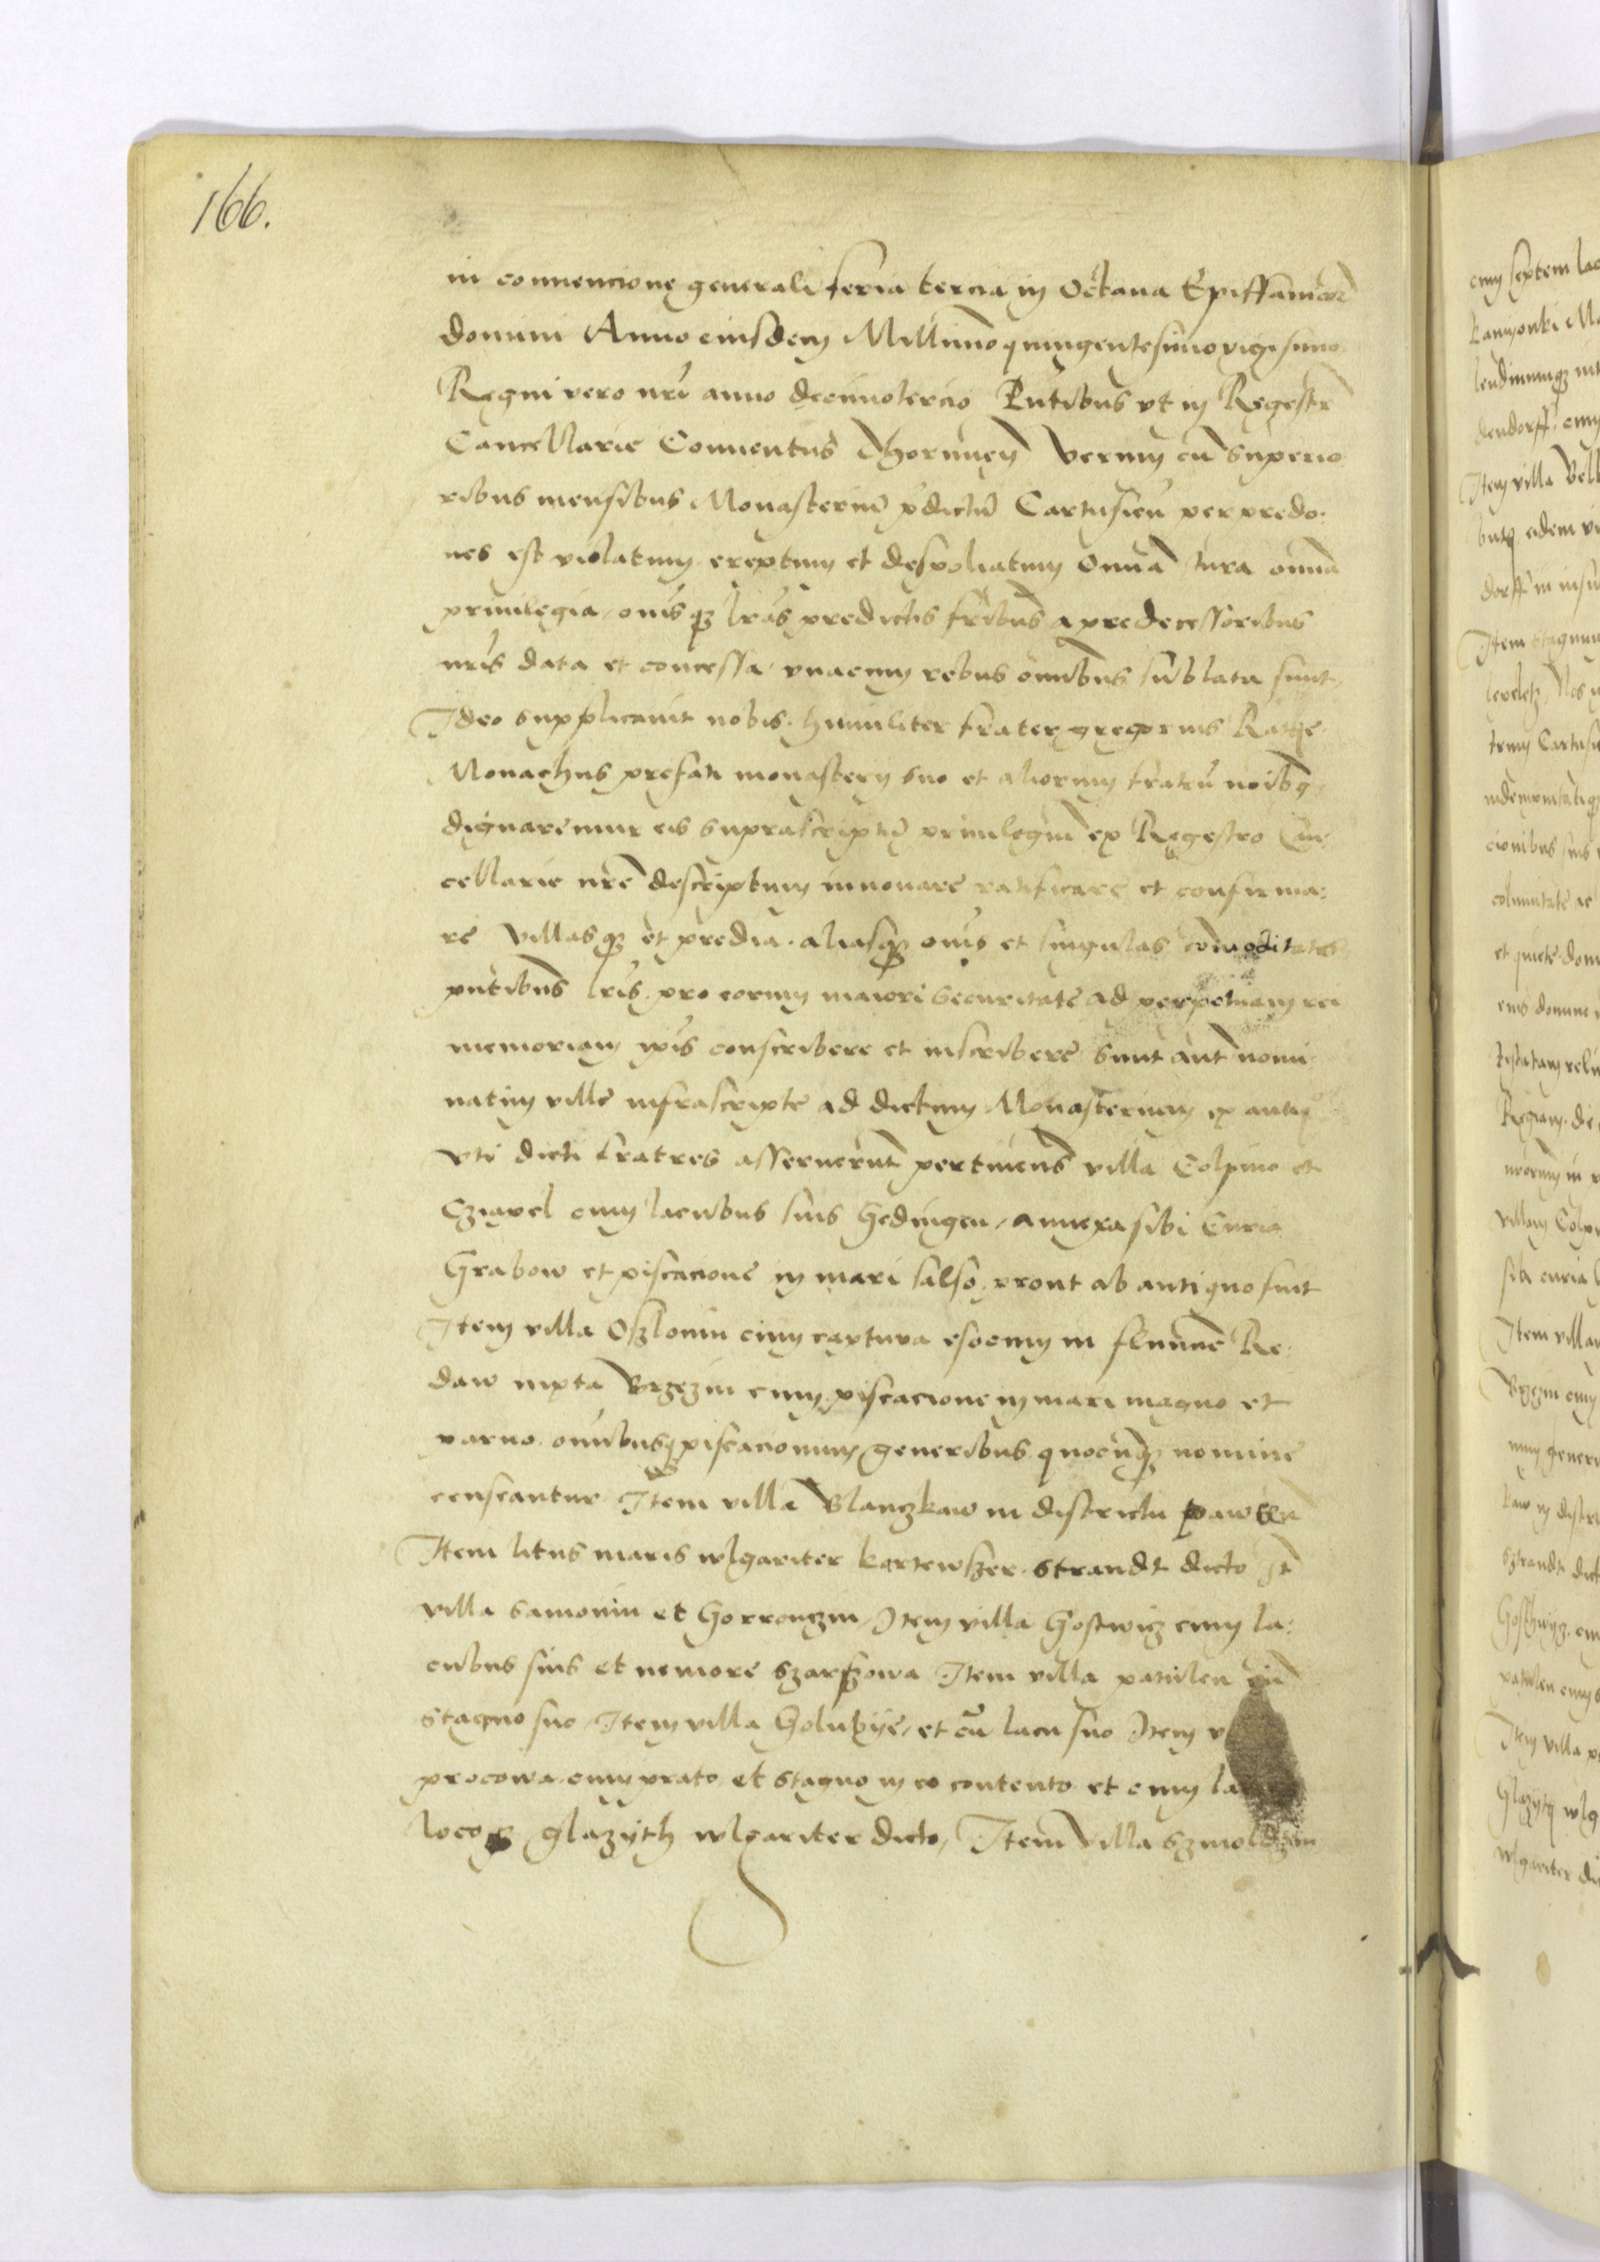 166.
in conuencione generali feria tercia in Octaua Epiffaniar
domini Anno eiusdem Millimo quingentesimo vigesimo
Regni vero nri anno decimotercio Pntibus vt in Regestr
Cancellarie Conuentus Thorunen Verum cu superio
ribus mensibus Monasteriu pdictu Cartusien per predo:
nes est violatum ereptum et despoliatum Omnia iura omnia
priuilegia, omsqz lras predictis fribus a predecessoribus
nris data et concessa, vnacum rebus omnibus sublata sunt,
Ideo supplicauit nobis humiliter frater gregorius
Monachus prefati monastery suo et aliorum fratru noibq,
dignaremur eis suprascriptu priuilegiu ex Regestro Can
cellarie nre descriptum innouare ratificare et confirma:
re Villasqz et predia, aliasqz oms et singulas comoditates
pntibus lris pro eorum maiori securitate ad perpetuam rei
memoriam ipis conscribere et inscribere Sunt aut nomi
natim ville infrascripte ad dictum Monasterium ex antiq
vti dicti fratres asseruerunt pertinens villa Colpino et
Cziapel cum lacubus suis Gedingen, annexa sibi Curia
Grabow et piscacione in mari salso, prout ab antiquo fuit
Item villa Oszlonin cum captura esocum in flumine Re:
daw iuxta Brzezin cum piscacione in mari magno et
paruo omnibusq piscacionum generibus quocunqz nomine
censeantur Item villa Blanczkaw in districtu
Item litus maris wlgariter kartewszer strandt dicto It
villa Samonin et Gorrenczin, Item villa Gostwicz cum la:
cubus suis et nemore szarszowa Item villa patulen cu
stagno suo, Item villa Golubye, et cu lacu suo Item v
procowa cum prato et stagno in eo contento et cum
loco glazyth wlgariter dicto, Item villa Szmoldzin
emy septem lac
Item villa
Item stagnum
et quiete
Regiam
villam Colp
sibi curia
Item villam
Brzezin cum
Item villa
Glazyth wlg
wlgariter di